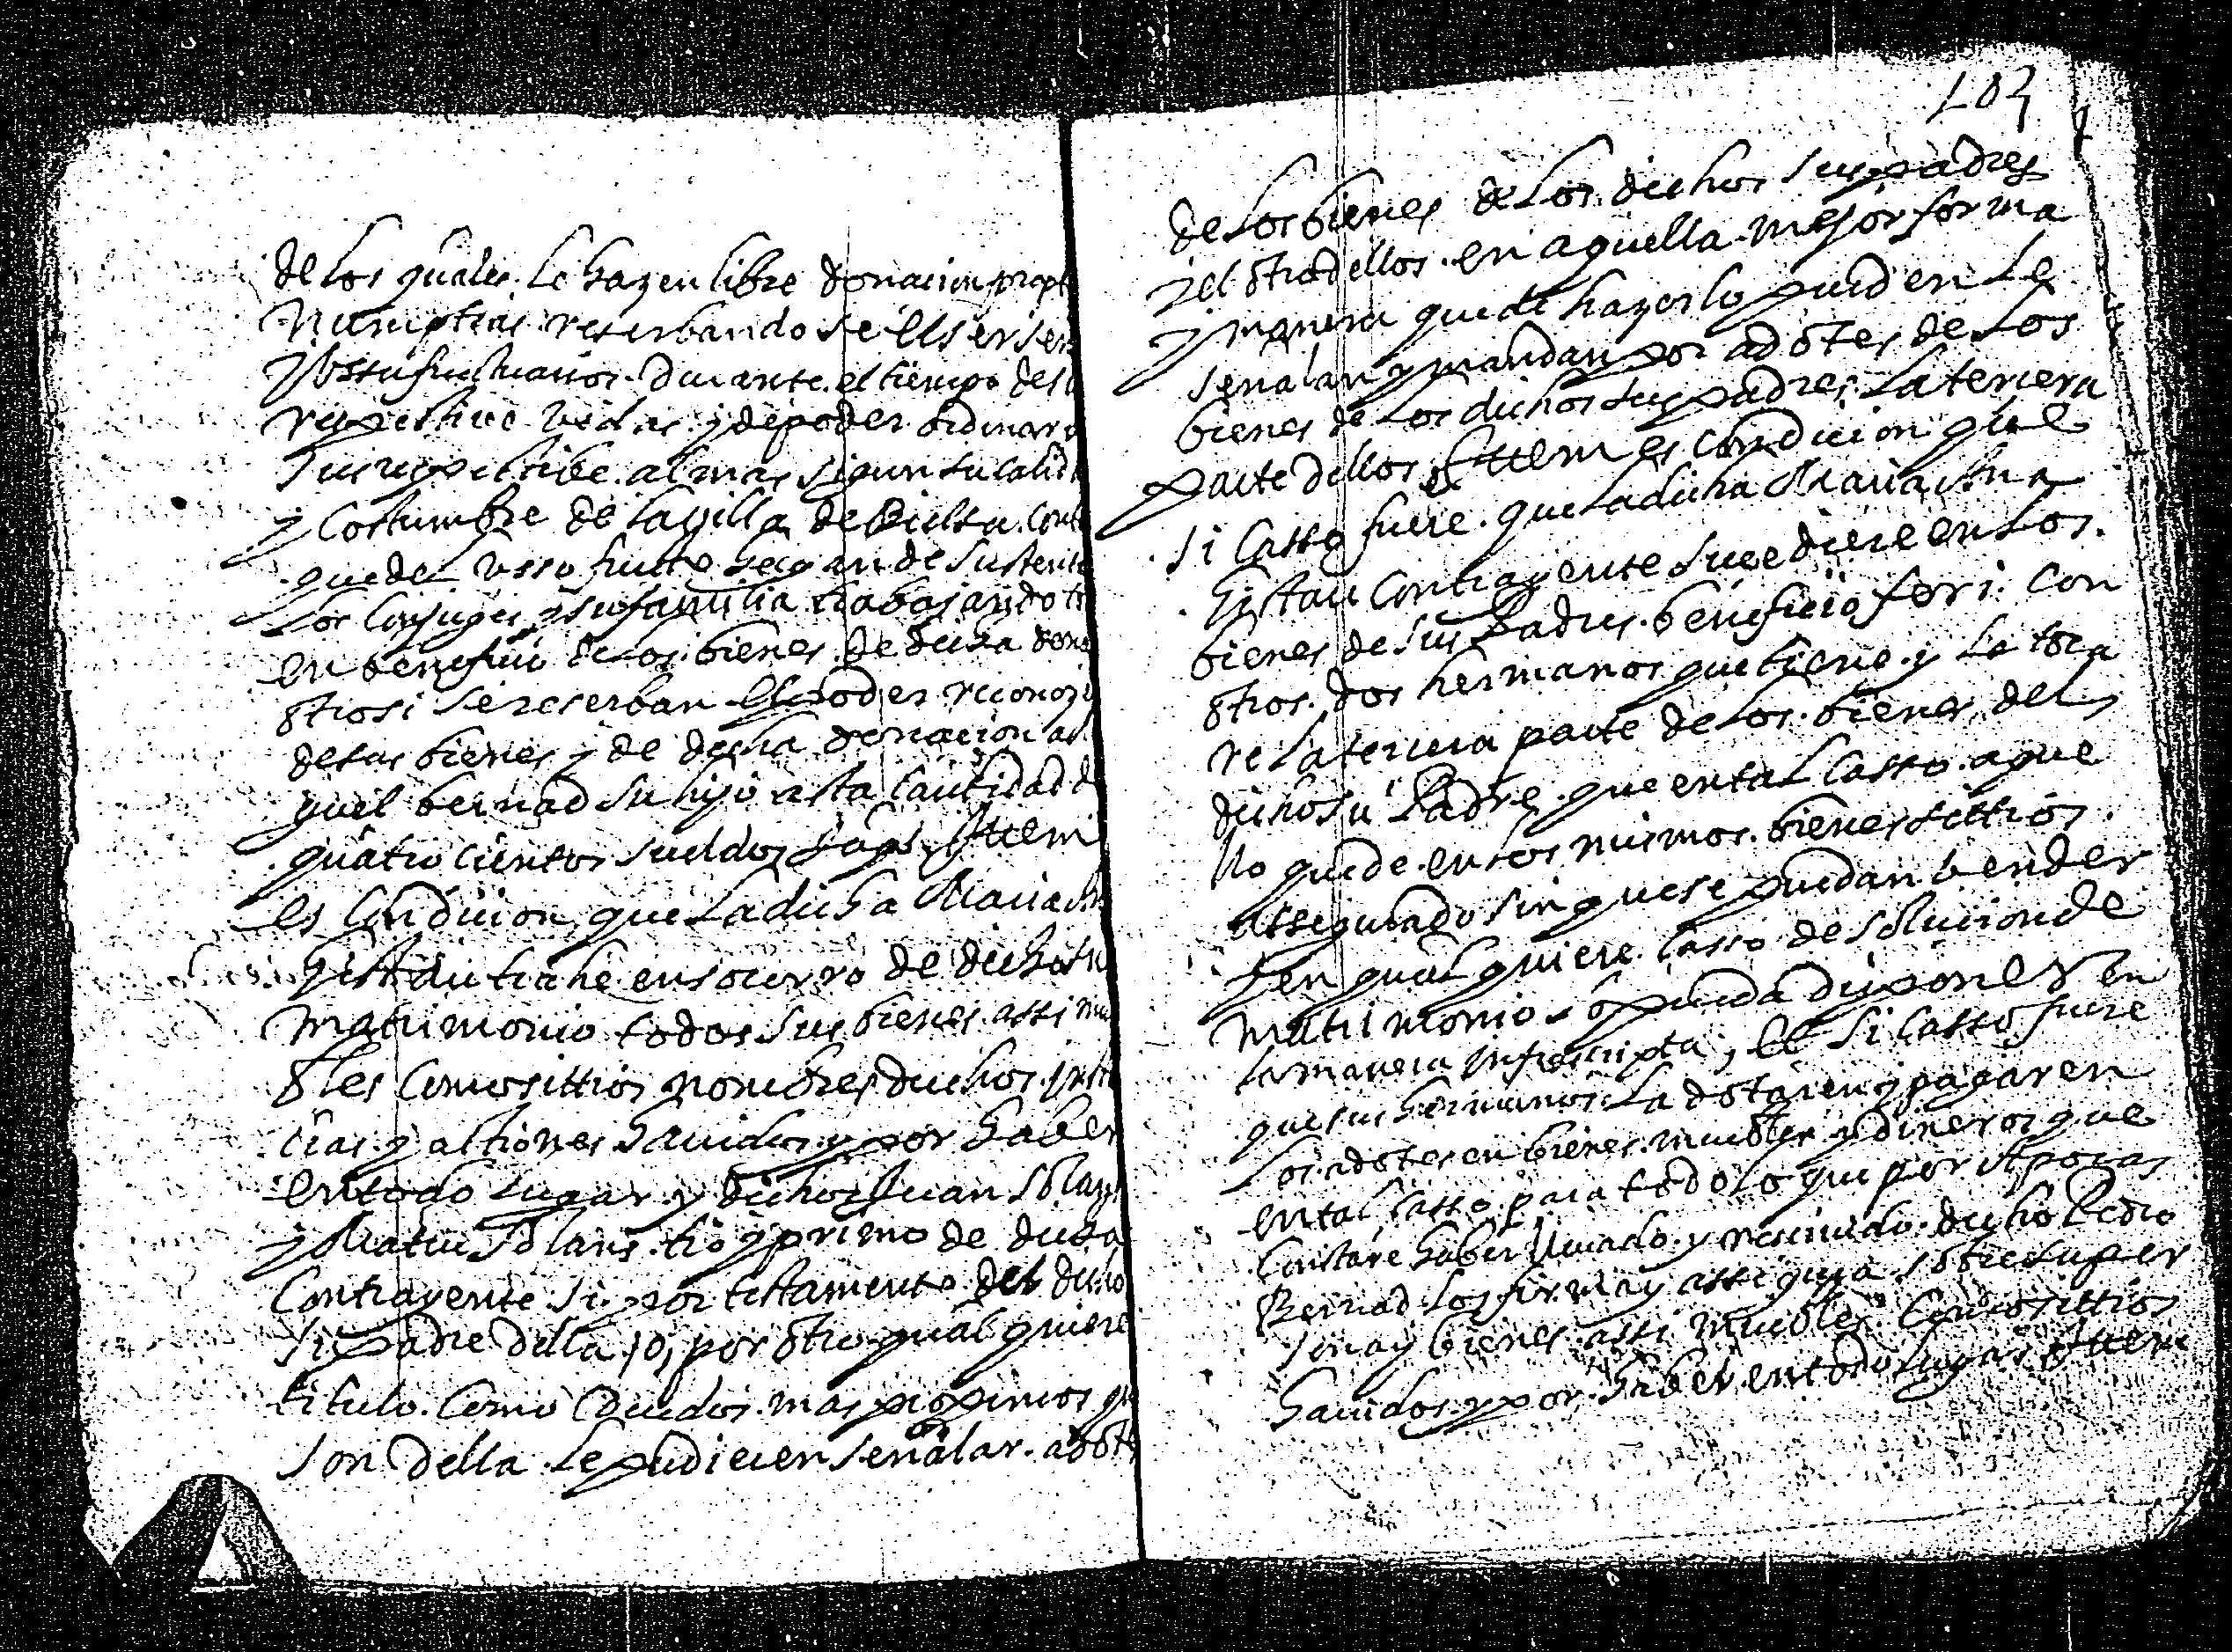 de los quales le hazen libre donacion propt
Numptias reserbando se ells er sen
y ussufructuarios durante el tiempo de su
respective vidas y de poder ordinar
sus respective almas segun su calid
y Costumbre de la villa de Bielsa con
que del usso fructo hagan de sustent
Los Conjuges y su familia trabajando
en beneficio de los bienes de dicha dona
otrosi se reserban el poder reconoz
de sus bienes y de dicha donacion a
guel bernad su hijo asta cantidad d
quatro cientos sueldos Jaqs Ittem
es condicion que la dicha Maria An
Gistau trahe en socorro de dicho su
matrimonio todos sus bienes assi mu
bles como sittios nombres dichos insta
cias y actiones havidos y por haber
en todo lugar y dichos Juan Solans
y Matheu Solans tio y primo de dicha
Contrayente si por testamento del dicho
su padre della, o, por otro qual quiere
titulo como deudos mas propincos q
son della le pudieren señalar adote
103
de los bienes de los dichos sus padres
y el otro dellos en aquella mejor forma
y manera que de hazerlo pueden le
señalan y mandan por adotes de los
bienes de los dichos sus padres la tercera
parte dellos Ittem es condicion que
si Casso fuere que la dicha Maria Ana
Gistau Contrayente sucediere en los
bienes de sus Padres beneficio fori con
otros dos hermanos que tiene y le toca
re la tercera parte de los bienes del
dicho su Padre que en tal Casso aque
llo quede en los mismos bienes sittios
assegurado sin que se puedan bender
y en qual quiere Casso de solucion de
matrimonio pueda disponer en
la manera infrascripta, et si Casso fuere
que sus hermanos la dotaren y pagaren
los adotes en bienes muebles y dineros que
en tal Casso para todo lo que por Apocas
Constare haber llevado y recivido dicho Pedro
Bernad los firma y assegura sobre su per
sona y bienes assi muebles Como sittios
havidos y por haber en todo lugar Ittem